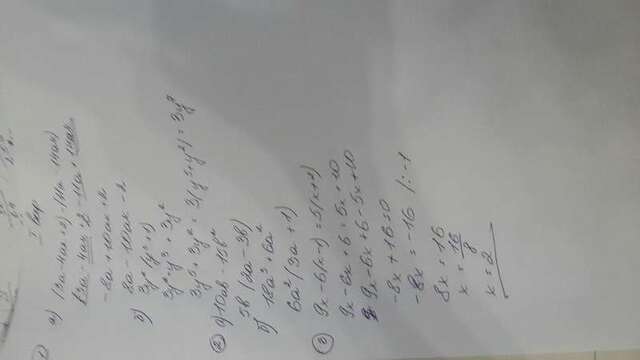 I вар
① а) (3a-4ax+2)-(11a-14ax)
3a-4ax+2-11a+14ax
-8a+10ax+2
8a-10ax-2
б) 3y²(y³+1)
3y²·y³+3y²
② а) 10ab-15b²
5b(2a-3b)
б) 18a³+6a²
6a²(3a+1)
③ 9x-6(x-1)=5(x+2)
9x-6x+6=5x+10
9x-6x+6-5x+10
-8x+16=0
-8x=-16 /:-1
8x=16
x=16/8
x=2